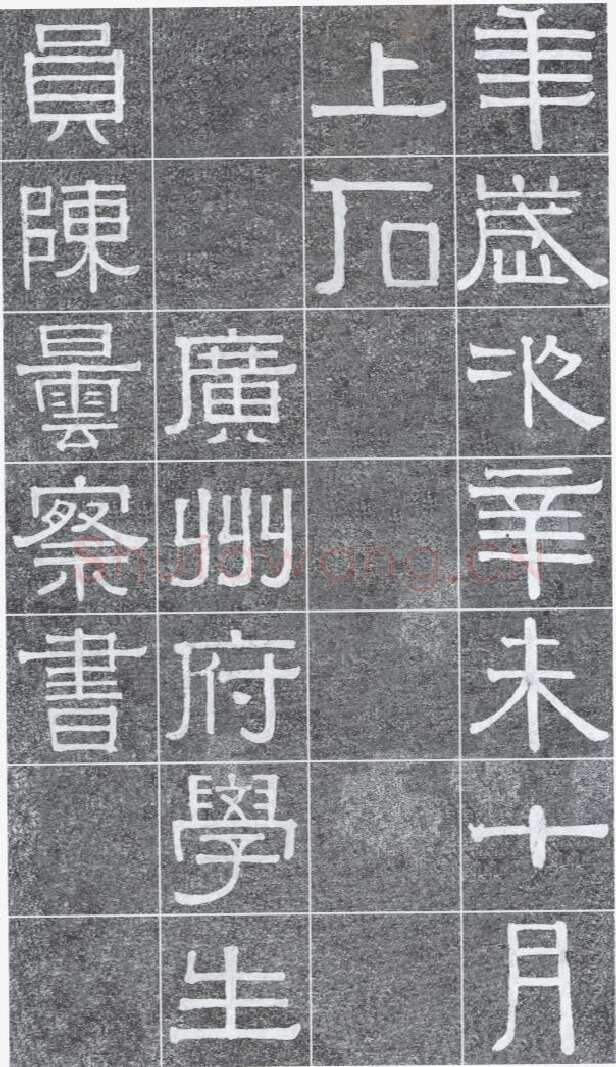 年歲次辛未十月
上石
廣州府學生
員陳曇察書
Shufawang.CN